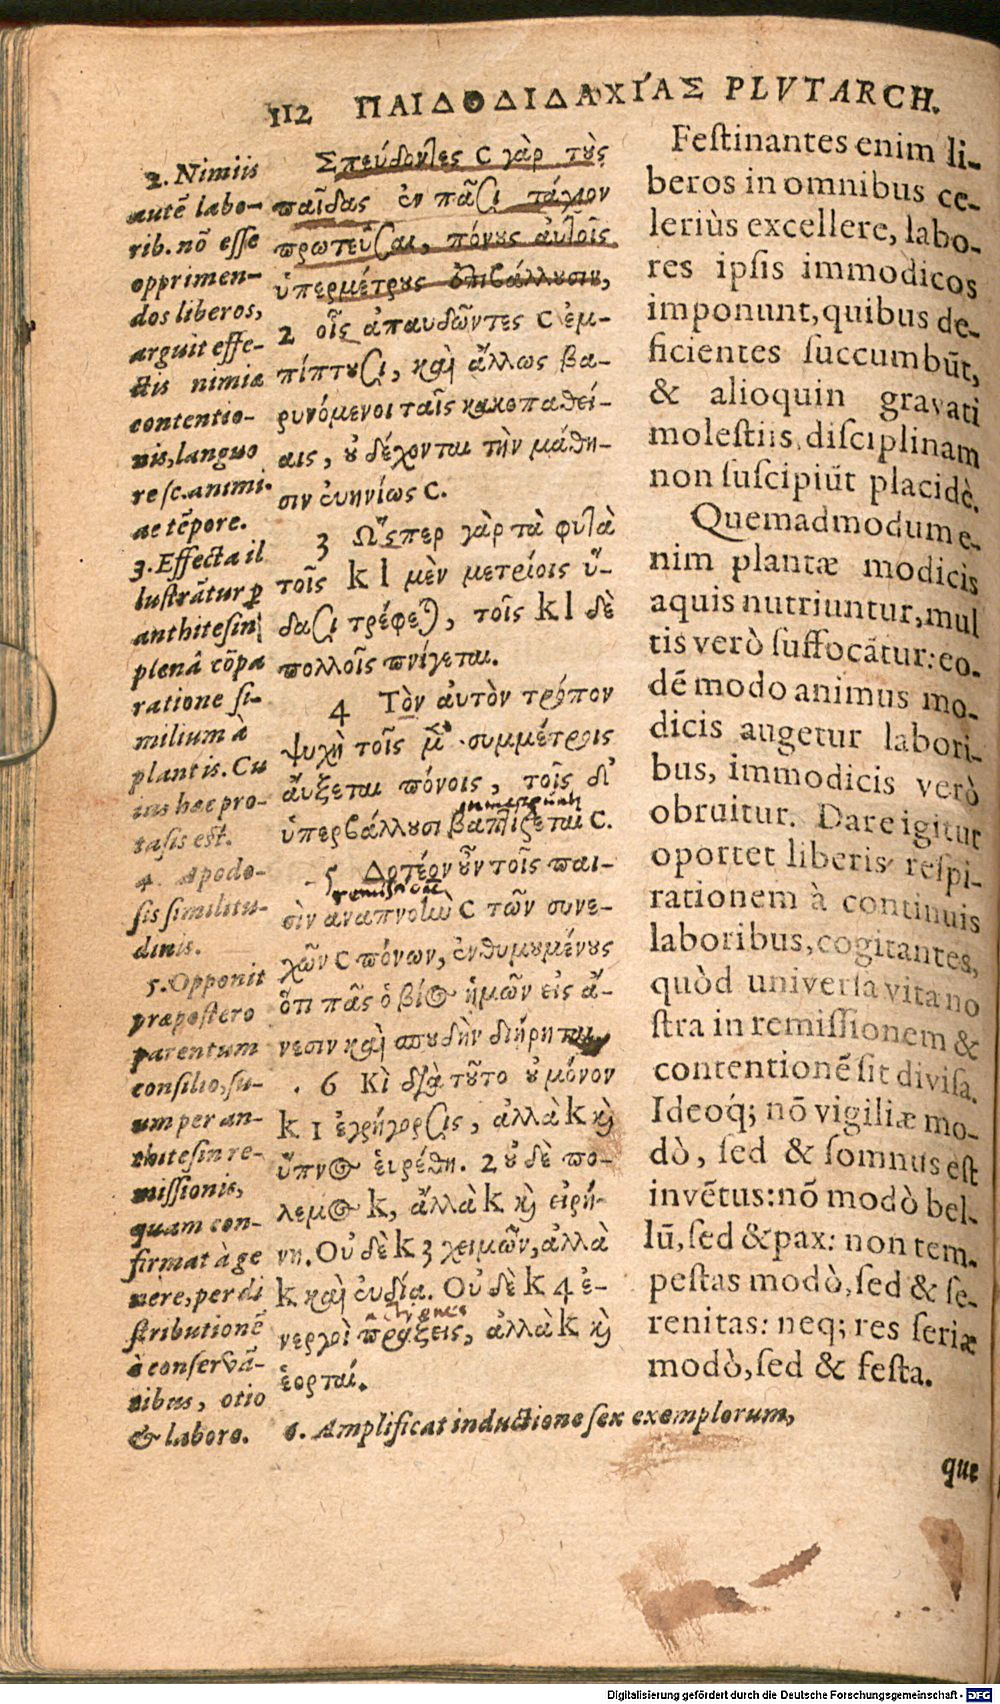 112 ΠΑΙΔΟΔΙΔΑΧΙΑΣ PLVTARCH.
2. Nimiis
autē labo-
rib. nō esse
opprimen-
dos liberos,
arguit effe-
ctis nimiæ
contentio-
nis, languo
re sc. animi
ac tēpore.
3. Effecta il
lustrātur ꝑ
anthitesin
plenâ cōpa
ratione si-
milium à
plantis. Cu
ius hæc pro-
tasis est.
4. Apodo-
sis similitu-
dinis.
5. Opponit
præpostero
parentum
consilio, su-
um per an-
thitesin re-
missionis,
quam con-
firmat à ge
nere, per di
stributionē
à conservā-
tibus, otio
& labore.
Σπεύδοντες C γὰρ τοὺς
παῖδας ἐν πᾶσι τάχιον
πρωτεῦσαι, πόνους αὐτοῖς
ὑπερμέτρους ἐπιβάλλουσιν,
2 οἷς ἀπαυδῶντες C ἐμ-
πίπτουσι, καὶ ἄλλως βα-
ρυνόμενοι ταῖς κακοπαθεί-
αις, οὐ δέχονται τὴν μάθη-
σιν εὐηνίως C.
3 Ὥσπερ γὰρ τὰ φυτὰ
τοῖς k l μὲν μετρίοις ὕ-
δασι τρέφεται, τοῖς k l δὲ
πολλοῖς πνίγεται.
4 Τὸν αὐτὸν τρόπον
ψυχὴ τοῖς μὲν συμμέτροις
αὔξεται πόνοις, τοῖς δ'
ὑπερβάλλουσι βαπτίζεται C.
5 Δοτέον οὖν τοῖς παι-
σὶν ἀναπνοὴν C τῶν συνε-
χῶν C πόνων, ἐνθυμουμένους
ὅτι πᾶς ὁ βίος ἡμῶν εἰς ἄ-
νεσιν καὶ σπουδὴν διῄρηται.
6 Κὶ διὰ τοῦτο οὐ μόνον
k 1 ἐγρήγορσις, ἀλλὰ k καὶ
ὕπνος εὑρέθη. 2 οὐδὲ πό-
λεμος k, ἀλλὰ k καὶ εἰρή-
νη. Οὐδὲ k 3 χειμῶν, ἀλλὰ
k καὶ εὐδία. Οὐδὲ k 4 ἐ-
νεργοὶ πράξεις, ἀλλὰ k καὶ
ἑορταί.
Festinantes enim li-
beros in omnibus ce-
leriùs excellere, labo-
res ipsis immodicos
imponunt, quibus de-
ficientes succumbūt,
& alioquin gravati
molestiis, disciplinam
non suscipiūt placidè.
Quemadmodum e-
nim plantæ modicis
aquis nutriuntur, mul
tis verò suffocātur: eo-
dē modo animus mo-
dicis augetur labori-
bus, immodicis verò
obruitur. Dare igitur
oportet liberis respi-
rationem à continuis
laboribus, cogitantes,
quòd universa vita no
stra in remissionem &
contentionē sit divisa.
Ideoq́; nō vigiliæ mo-
dò, sed & somnus est
invētus: nō modò bel-
lū, sed & pax: non tem-
pestas modò, sed & se-
renitas: neq; res seriæ
modò, sed & festa.
6. Amplificat inductione sex exemplorum,
que
Digitalisierung gefördert durch die Deutsche Forschungsgemeinschaft - DFG